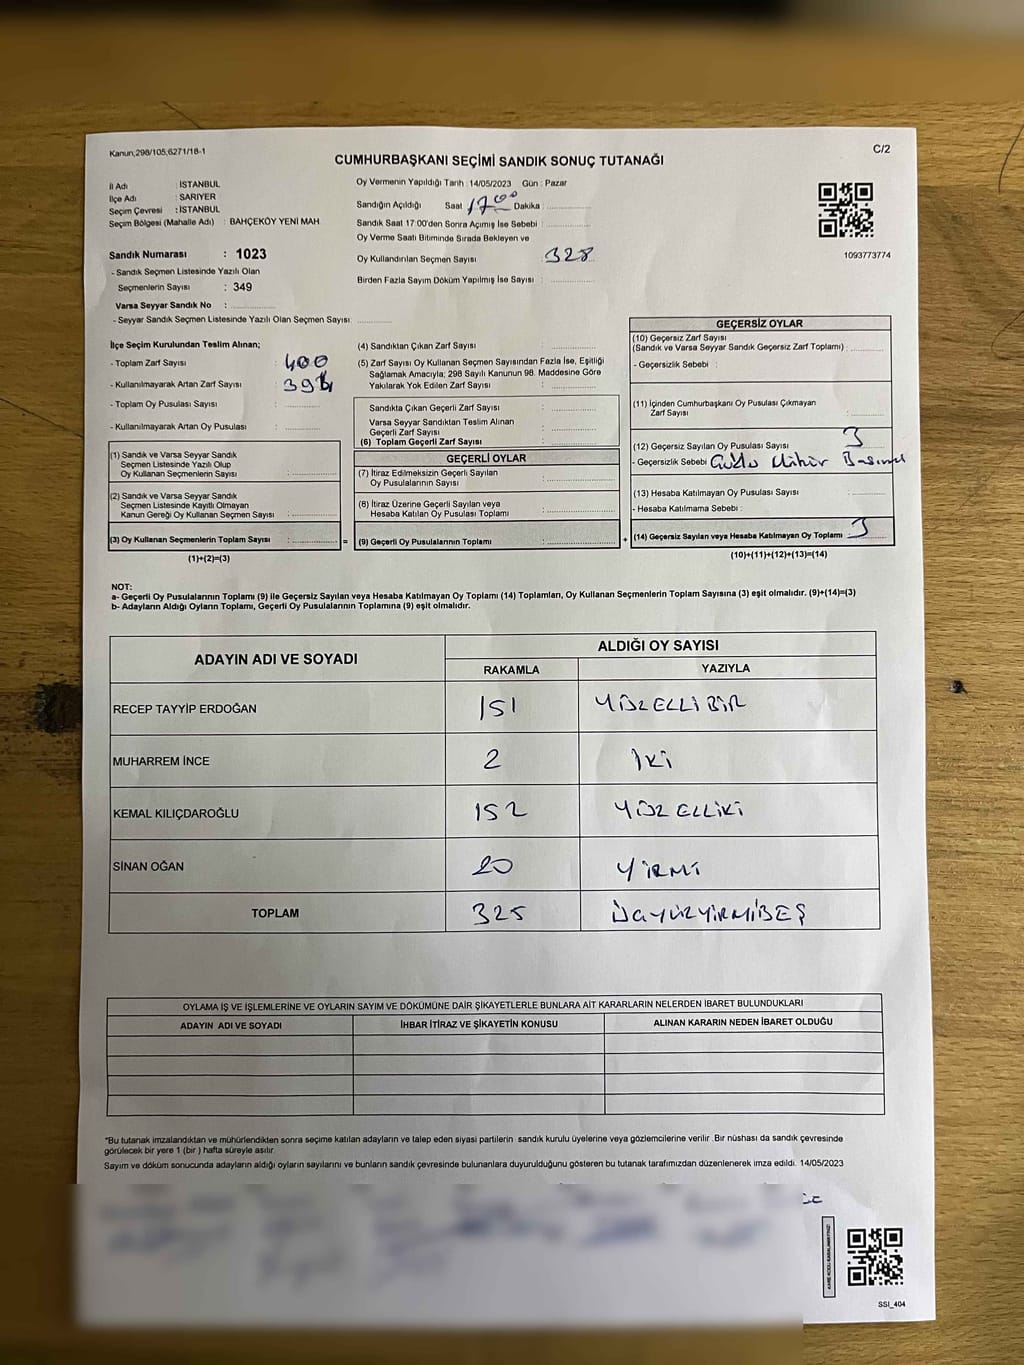 Kanun,298/105,6271/18-1
C/2
CUMHURBAŞKANI SEÇİMİ SANDIK SONUÇ TUTANAĞI
İl Adı : İSTANBUL
İlçe Adı : SARIYER
Seçim Çevresi : İSTANBUL
Seçim Bölgesi (Mahalle Adı) : BAHÇEKÖY YENİ MAH
Sandık Numarası : 1023
- Sandık Seçmen Listesinde Yazılı Olan
Seçmenlerin Sayısı : 349
Varsa Seyyar Sandık No :
- Seyyar Sandık Seçmen Listesinde Yazılı Olan Seçmen Sayısı:
Oy Vermenin Yapıldığı Tarih :14/05/2023 Gün : Pazar
Sandığın Açıldığı Saat 17 00 Dakika :
Sandık Saat 17:00'den Sonra Açımış İse Sebebi :
Oy Verme Saati Bitiminde Sırada Bekleyen ve
Oy Kullandırılan Seçmen Sayısı 328
Birden Fazla Sayım Döküm Yapılmış İse Sayısı :
1093773774
İlçe Seçim Kurulundan Teslim Alınan;
- Toplam Zarf Sayısı : 400
- Kullanılmayarak Artan Zarf Sayısı :
- Toplam Oy Pusulası Sayısı :
- Kullanılmayarak Artan Oy Pusulası :
(1) Sandık ve Varsa Seyyar Sandık
Seçmen Listesinde Yazılı Olup
Oy Kullanan Seçmenlerin Sayısı :
(2) Sandık ve Varsa Seyyar Sandık
Seçmen Listesinde Kayıtlı Olmayan
Kanun Gereği Oy Kullanan Seçmen Sayısı :
(3) Oy Kullanan Seçmenlerin Toplam Sayısı :
(1)+(2)=(3)
(4) Sandıktan Çıkan Zarf Sayısı :
(5) Zarf Sayısı Oy Kullanan Seçmen Sayısından Fazla İse, Eşitliği
Sağlamak Amacıyla; 298 Sayılı Kanunun 98. Maddesine Göre
Yakılarak Yok Edilen Zarf Sayısı :
Sandıkta Çıkan Geçerli Zarf Sayısı :
Varsa Seyyar Sandıktan Teslim Alınan
Geçerli Zarf Sayısı :
(6) Toplam Geçerli Zarf Sayısı :
GEÇERLİ OYLAR
(7) İtiraz Edilmeksizin Geçerli Sayılan
Oy Pusulalarının Sayısı :
(8) İtiraz Üzerine Geçerli Sayılan veya
Hesaba Katılan Oy Pusulası Toplamı :
= (9) Geçerli Oy Pusulalarının Toplamı :
GEÇERSİZ OYLAR
(10) Geçersiz Zarf Sayısı
(Sandık ve Varsa Seyyar Sandık Geçersiz Zarf Toplamı) :
- Geçersizlik Sebebi :
(11) İçinden Cumhurbaşkanı Oy Pusulası Çıkmayan
Zarf Sayısı :
(12) Geçersiz Sayılan Oy Pusulası Sayısı : 3
- Geçersizlik Sebebi
(13) Hesaba Katılmayan Oy Pusulası Sayısı :
- Hesaba Katılmama Sebebi :
+ (14) Geçersiz Sayılan veya Hesaba Katılmayan Oy Toplamı 3
(10)+(11)+(12)+(13)=(14)
NOT:
a- Geçerli Oy Pusulalarının Toplamı (9) ile Geçersiz Sayılan veya Hesaba Katılmayan Oy Toplamı (14) Toplamları, Oy Kullanan Seçmenlerin Toplam Sayısına (3) eşit olmalıdır. (9)+(14)=(3)
b- Adayların Aldığı Oyların Toplamı, Geçerli Oy Pusulalarının Toplamına (9) eşit olmalıdır.
ADAYIN ADI VE SOYADI
ALDIĞI OY SAYISI
RAKAMLA YAZIYLA
RECEP TAYYİP ERDOĞAN 151 YÜZELLİBİR
MUHARREM İNCE 2 İki
KEMAL KILIÇDAROĞLU 152 YÜZ ELLİKİ
SİNAN OĞAN 20 YİRMİ
TOPLAM 325 ÜÇYÜZYİRMİBEŞ
OYLAMA İŞ VE İŞLEMLERİNE VE OYLARIN SAYIM VE DÖKÜMÜNE DAİR ŞİKAYETLERLE BUNLARA AİT KARARLARIN NELERDEN İBARET BULUNDUKLARI
ADAYIN ADI VE SOYADI İHBAR İTİRAZ VE ŞİKAYETİN KONUSU ALINAN KARARIN NEDEN İBARET OLDUĞU
*Bu tutanak imzalandıktan ve mühürlendikten sonra seçime katılan adayların ve talep eden siyasi partilerin sandık kurulu üyelerine veya gözlemcilerine verilir. Bir nüshası da sandık çevresinde
görülecek bir yere 1 (bir ) hafta süreyle asılır.
Sayım ve döküm sonucunda adayların aldığı oyların sayılarını ve bunların sandık çevresinde bulunanlara duyurulduğunu gösteren bu tutanak tarafımızdan düzenlenerek imza edildi. 14/05/2023
SSI_404